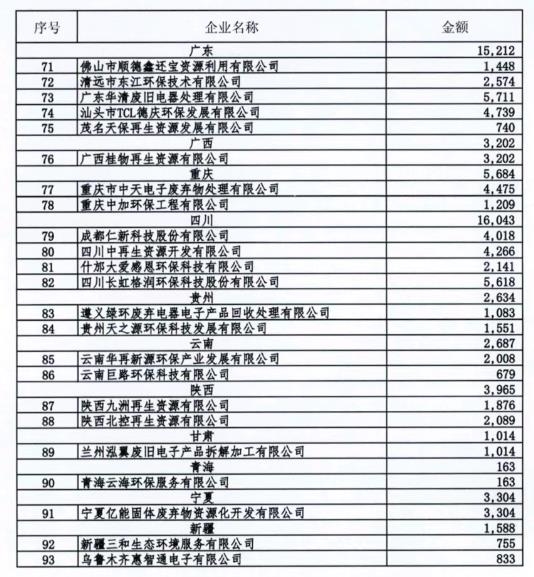 序号 企业名称 金额
广东 15,212
71 佛山市顺德鑫还宝资源利用有限公司 1,448
72 清远市东江环保技术有限公司 2,574
73 广东华清废旧电器处理有限公司 5,711
74 汕头市TCL德庆环保发展有限公司 4,739
75 茂名天保再生资源发展有限公司 740
广西 3,202
76 广西桂物再生资源有限公司 3,202
重庆 5,684
77 重庆市中天电子废弃物处理有限公司 4,475
78 重庆中加环保工程有限公司 1,209
四川 16,043
79 成都仁新科技股份有限公司 4,018
80 四川中再生资源开发有限公司 4,266
81 什邡大爱感恩环保科技有限公司 2,141
82 四川长虹格润环保科技股份有限公司 5,618
贵州 2,634
83 遵义绿环废弃电器电子产品回收处理有限公司 1,083
84 贵州天之源环保科技发展有限公司 1,551
云南 2,687
85 云南华再新源环保产业发展有限公司 2,008
86 云南巨路环保科技有限公司 679
陕西 3,965
87 陕西九洲再生资源有限公司 1,876
88 陕西北控再生资源有限公司 2,089
甘肃 1,014
89 兰州泓翼废旧电子产品拆解加工有限公司 1,014
青海 163
90 青海云海环保服务有限公司 163
宁夏 3,304
91 宁夏亿能固体废弃物资源化开发有限公司 3,304
新疆 1,588
92 新疆三和生态环境服务有限公司 755
93 乌鲁木齐惠智通电子有限公司 833